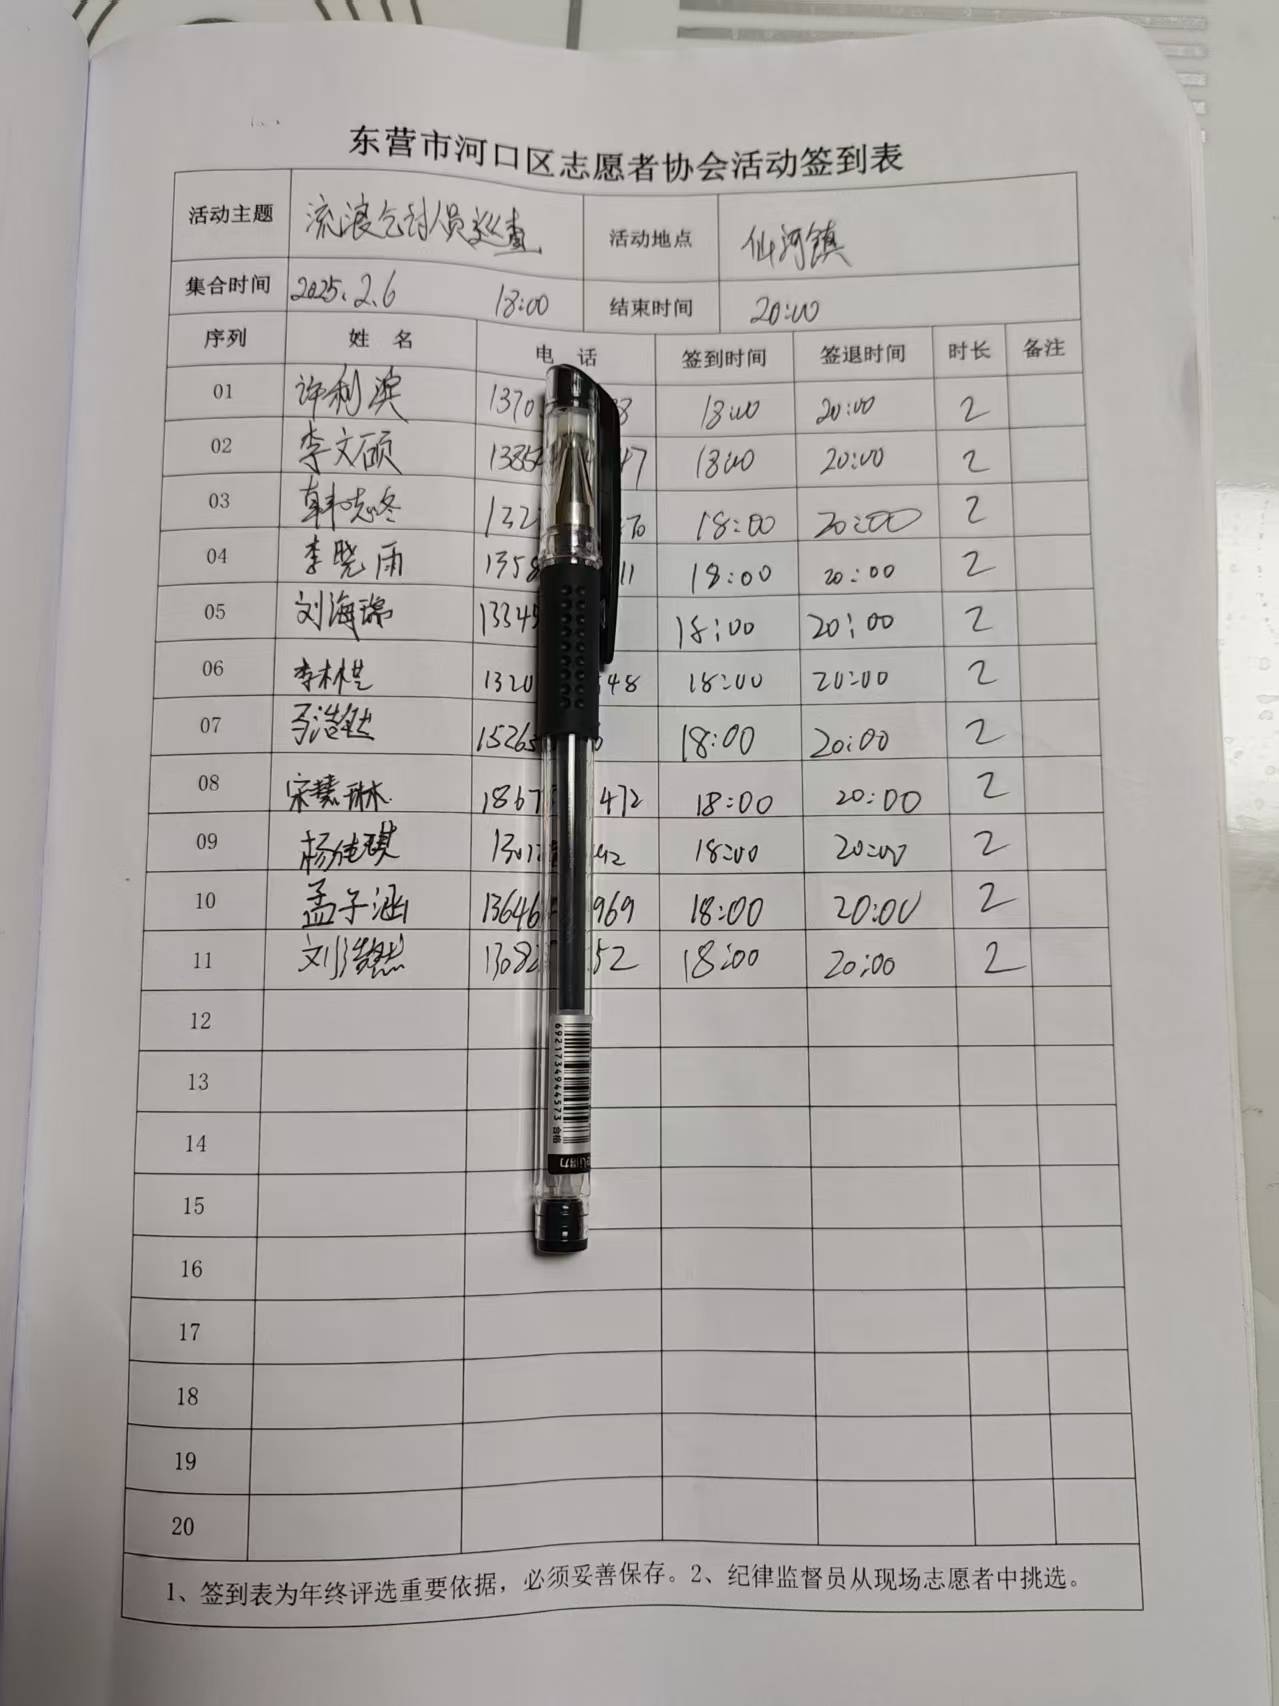 东营市河口区志愿者协会活动签到表
活动主题 流浪乞讨人员巡查 活动地点 仙河镇
集合时间 2025.2.6 18:00 结束时间 20:00
序列 姓名 电话 签到时间 签退时间 时长 备注
01 许利滨 1370 8 18:00 20:00 2
02 李文硕 1385 47 18:00 20:00 2
03 韩志冬 132 70 18:00 20:00 2
04 李晓雨 1358 11 18:00 20:00 2
05 刘海锦 13345 18:00 20:00 2
06 李林 1320 48 18:00 20:00 2
07 浩 15265 18:00 20:00 2
08 宋慧琳 1867 472 18:00 20:00 2
09 杨佳琪 130 42 18:00 20:00 2
10 孟子涵 13646 969 18:00 20:00 2
11 刘浩然 13082 52 18:00 20:00 2
12
13
14
15
16
17
18
19
20
1、签到表为年终评选重要依据，必须妥善保存。2、纪律监督员从现场志愿者中挑选。
6921734944573 合格